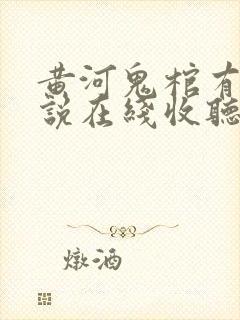 黄河鬼棺有
說在綫收聽
燉酒